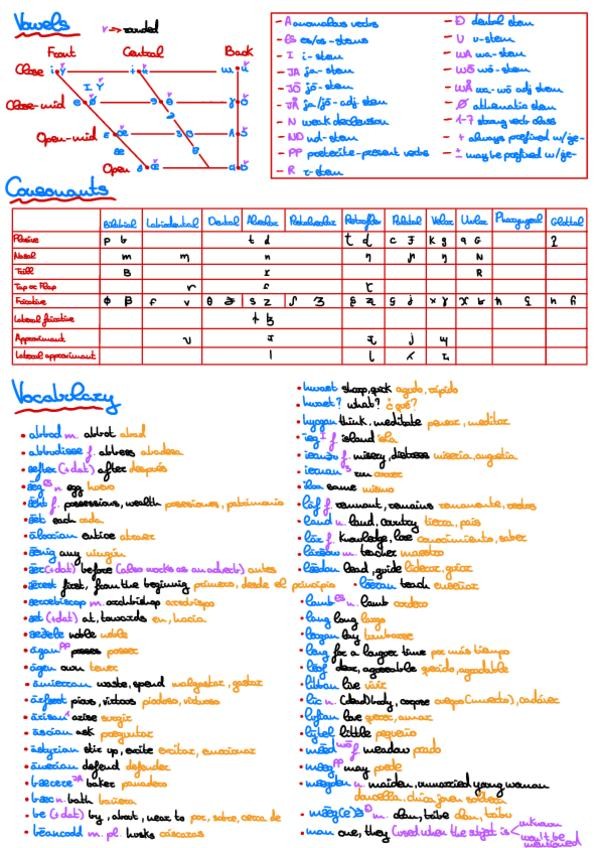 Vowels
→ rounded
Front Central Back
Close
Close-mid
Open-mid
Open
- A anomalous verbs
- ES es/os-stems
- I i-stem
- JA ja-stem
- JŌ jō-stem
- JÅ ja/jō-adj-stem
- N weak declension
- ND nd-stem
- PP preterite-present verbs
- R r-stem
- Ð dental stem
- U u-stem
- WA wa-stem
- WŌ wō-stem
- WÅ wa-wō adj stem
- Ø athematic stem
- 1-7 strong verb class
- + always prefixed w/ge-
- ± may be prefixed w/ge-
Consonants
Bilabial Labiodental Dental Alveolar Postalveolar Retroflex Palatal Velar Uvular Pharyngeal Glottal
Plosive p b t d ʈ ɖ c ɟ k g q ɢ ʔ
Nasal m ɱ n ɳ ɲ ŋ ɴ
Trill ʙ r ʀ
Tap or Flap ⱱ ɾ ɽ
Fricative ɸ β f v θ ð s z ʃ ʒ ʂ ʐ ç ʝ x ɣ χ ʁ ħ ʕ h ɦ
Lateral fricative ɬ ɮ
Approximant ʋ ɹ ɻ j ɰ
Lateral approximant l ɭ ʎ ʟ
Vocabulary
• abbod m. abbot abad
• abbudisse f. abbess abadesa
• æfter (+dat) after después
• ǣg ES n. egg huevo
• ǣht f. possessions, wealth posesiones, patrimonio
• ǣlc each cada
entice atraer
• ǣnig any ningún
• ǣr (+dat) before (also works as an adverb) antes
• ǣrest first, from the beginnig primero, desde el principio
• ærcebiscop m. archbishop arzobispo
• æt (+dat) at, towards en, hacia
• æðele noble noble
• āgan PP possess poseer
• āgen own tener
• āmierran waste, spend malgastar, gastar
• ārfæst pious, virtuous piadoso, virtuoso
• ārīsan 1 arise surgir
• āscian ask preguntar
• āstyrian stir up, excite excitar, emocionar
defend defender
• bæcere JA baker panadero
• bæc n. bath bañera
• be (+dat) by, about, near to por, sobre, cerca de
• bēancodd m. pl. husks cáscaras
• hwæt sharp, quick agudo, rápido
• hwæt? what? ¿qué?
• hycgan think, meditate pensar, meditar
• īeg f. island isla
• iermþ f misery, distress miseria, angustia
• iernan 3 run correr
• ilca same mismo
• lāf f. remnant, remains remanente, restos
• land n. land, country tierra, país
• lār f. knowledge, lore conocimiento, saber
• lārēow m. teacher maestro
• lǣdan lead, guide liderar, guiar
• lǣran teach enseñar
• lamb ES n. lamb cordero
• lang long largo
• lay tumbarse
• leng for a longer time por más tiempo
• lēof dear, agreeable querido, agradable
• libban live vivir
• līc n. (dead) body, corpse cuerpo (muerto), cadáver
• lufian love querer, amar
• lȳtel little pequeño
• mǣd WŌ f meadow prado
• mæg PP may puede
• mægden n. maiden, unmarried young woman
doncella, chica joven soltera
• mǣg(e)ð Ð m. clan, tribe clan, tribu
• man one, they (used when the subject is unknown
won't be
mentioned